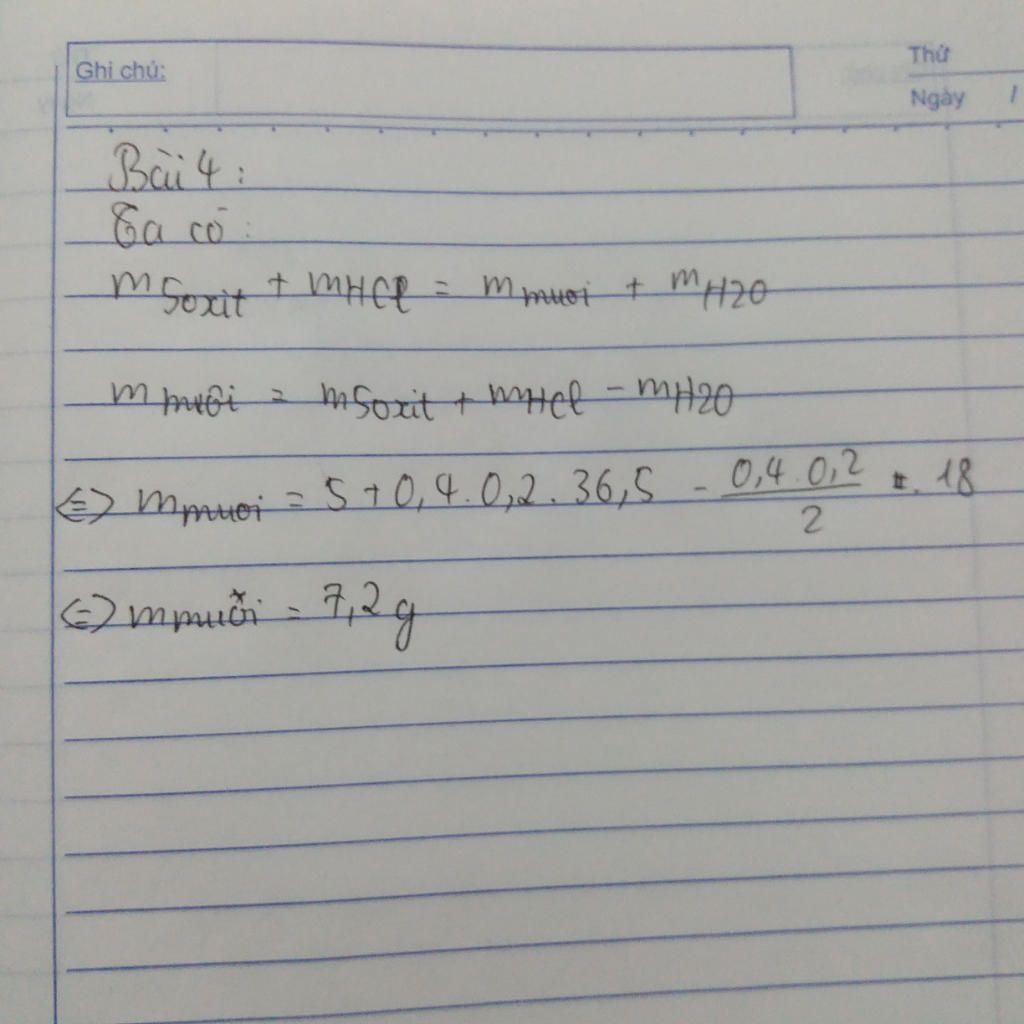 Ghi chú:
Thứ
Ngày /
Bài 4:
Ta có:
m5oxit + mHCl = mmuoi + mH2O
mmuối = m5oxit + mHCl - mH2O
<=> mmuoi = 5 + 0,4.0,2.36,5 - 0,4.0,2/2 . 18
<=> mmuối = 7,2g